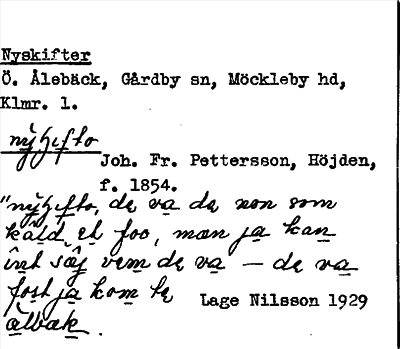 Nyskifter
Ö. Ålebäck, Gårdby sn, Möckleby hd,
Klmr. l.
nyʃifto
Joh. Fr. Pettersson, Höjden,
f. 1854.
"nyʃifto, de va de non som
kåld et foo, mæn ja kan
int säj vem de va — de va
fost ja kom te
Lage Nilsson 1929
ålbæk.